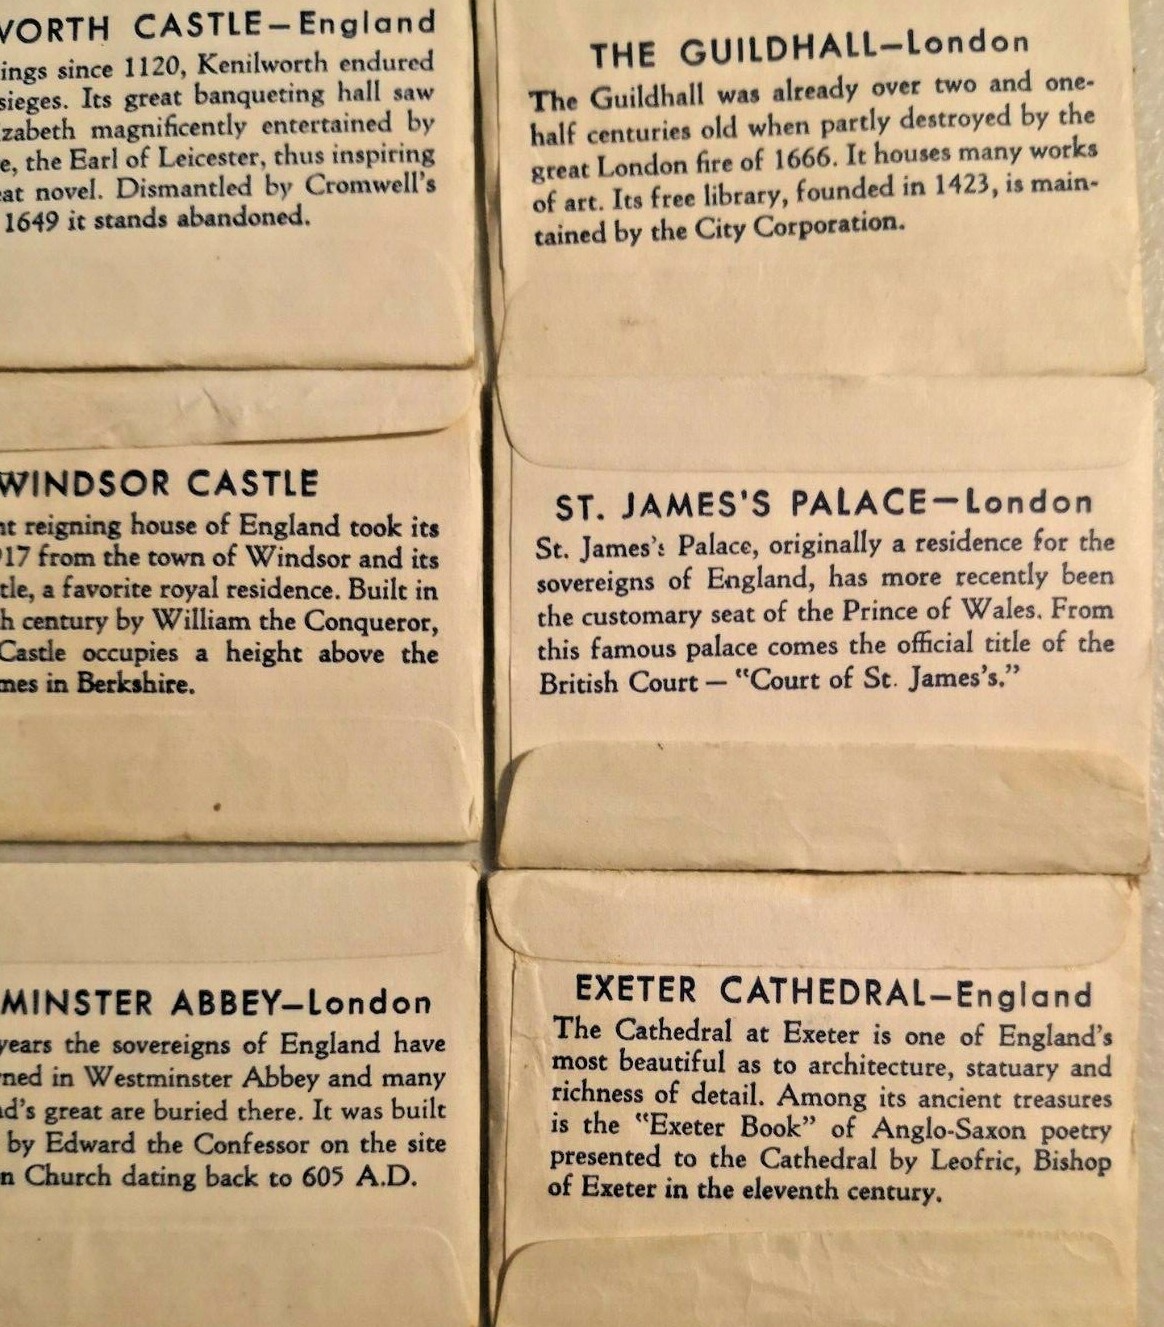 WORTH CASTLE—England
ings since 1120, Kenilworth endured
sieges. Its great banqueting hall saw
zabeth magnificently entertained by
e, the Earl of Leicester, thus inspiring
eat novel. Dismantled by Cromwell's
1649 it stands abandoned.
THE GUILDHALL—London
The Guildhall was already over two and one-
half centuries old when partly destroyed by the
great London fire of 1666. It houses many works
of art. Its free library, founded in 1423, is main-
tained by the City Corporation.
WINDSOR CASTLE
nt reigning house of England took its
17 from the town of Windsor and its
tle, a favorite royal residence. Built in
h century by William the Conqueror,
Castle occupies a height above the
mes in Berkshire.
ST. JAMES'S PALACE—London
St. James's Palace, originally a residence for the
sovereigns of England, has more recently been
the customary seat of the Prince of Wales. From
this famous palace comes the official title of the
British Court — "Court of St. James's."
MINSTER ABBEY—London
years the sovereigns of England have
ned in Westminster Abbey and many
nd's great are buried there. It was built
by Edward the Confessor on the site
n Church dating back to 605 A.D.
EXETER CATHEDRAL—England
The Cathedral at Exeter is one of England's
most beautiful as to architecture, statuary and
richness of detail. Among its ancient treasures
is the "Exeter Book" of Anglo-Saxon poetry
presented to the Cathedral by Leofric, Bishop
of Exeter in the eleventh century.